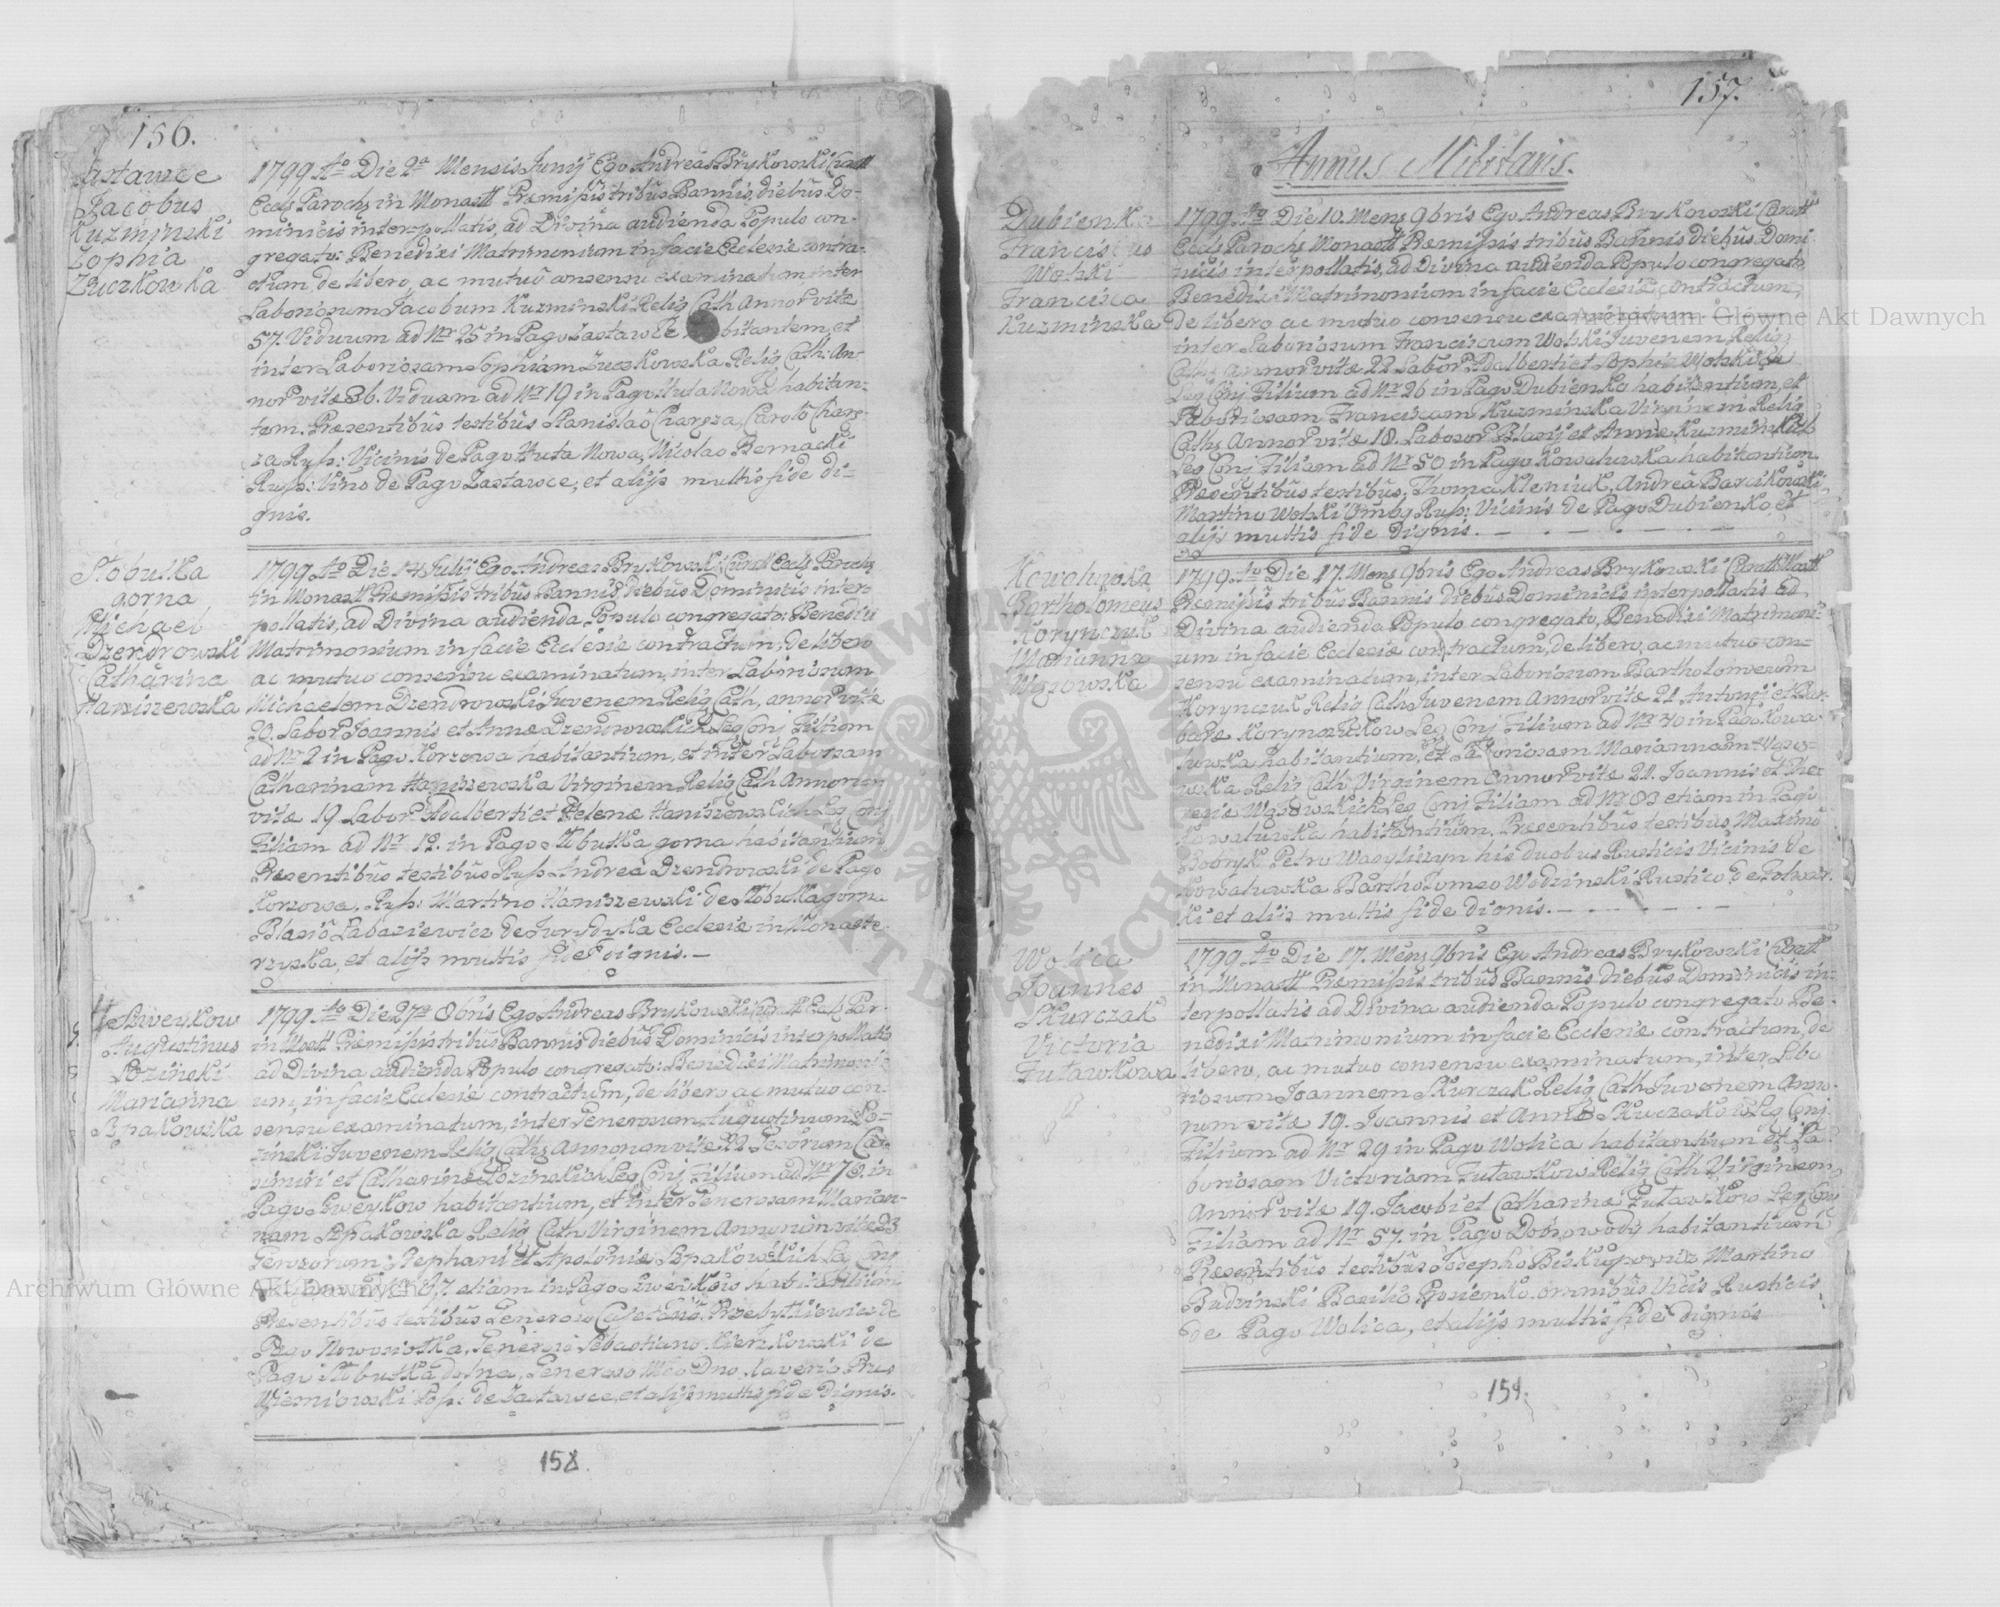 156.
Zastawce
Jacobus
Kuzminski
Zophia
Zuczkowska
1799 Ao Die 2a Mensis Junij Ego Andreas Brykowski
Eccls Parochs in Monast Præmissis tribus Bannis, diebus Do-
minicis interpollatis, ad Divina audienda Populo con-
gregato: Benedixi Matrimonium in facie Ecclesiæ contra-
ctum, de libero, ac mutuo consensu examinatum inter
Laboriosum Jacobum Kuzminski Relig Cath Annor vitæ
57. Viduum ad Nr 25 in Pago Zastawce bitantem, et
inter Laboriosam Sophiam Zuczkowska Relig Cath: An-
nor vitæ 36. Viduam ad Nr 19 in Pago Huta Nowa habitan-
tem. Præsentibus testibus Stanislao Charęza, Carolo Charę-
za Rus: Vicinis de Pago Huta Nowa, Nicolao Bernacki
Rus: Vino de Pago Zastawce, et alijs multis fide di-
gnis.
Słobutka
gorna
Michael
Dzendrowski
Catharina
Haniszewska
1799 Ao Die 14 Julij Ego Andreas Brykowski Curat Eccls Parochs
in Monast Præmissis tribus Bannis diebus Dominicis inter-
pollatis, ad Divina audienda Populo congregato: Benedixi
Matrimonium in facie Ecclesiæ contractum, de libero
ac mutuo consensu examinatum, inter Laboriosum
Michaelem Dzendrowski Juvenem Relig Cath, annor vitæ
20. Labor Joannis et Annæ Dzendrowskich Leg Conj Filium
ad Nr 2 in Pago Korzowa habitantium, et inter Laboriosam
Catharinam Haniszewska Virginem Relig Cath Annorum
vitæ 19 Labor Adalberti et Helenæ Haniszewskich Leg Conj
Filiam ad Nr 12. in Pago Słobutka gorna habitantium
Præsentibus testibus Rus Andrea Dzendrowski de Pago
Korzowa. Rus: Martino Haniszewski de Słobutka gorna
Blasio Labasiewicz de Jurydyka Ecclesiæ in Monaste-
rzyska, et alijs multis fide dignis.—
Zweykow
Augustinus
Łozinski
Marianna
Szpakowska
1799 Ao Die 27a 8bris Ego Andreas Brykowski Curat Eccls Par-
in Monast Præmissis tribus Bannis diebus Dominicis interpollatis
ad Divina audienda Populo congregato: Benedixi Matrimoni-
um, in facie Ecclesiæ contractum, de libero ac mutuo con-
sensu examinatum, inter Generosum Augustinum Ło-
zinski Juvenem Relig Caths Annorum vitæ 22 Generosorum Ca-
simiri et Catharinæ Łozinskich Leg Conj Filium ad Nr 78. in
Pago Zweykow habitantium, et inter Generosam Marian-
nam Szpakowska Relig Cath Virginem Annorum vitæ 23
Generosorum Stephani et Apoloniæ Szpakowskich Leg Conj
Filiam ad Nr 97. etiam in Pago Zweykow habitantium
Præsentibus testibus Generoso Cajetano Przebytkiewicz de
Pago Nowosiołka, Generoso Sebastiano Bienkowski de
Pago Słobutka dolna, Generoso Mco Dno Xaverio Prus
Wisniowski Pos: de Zastawce, et alijs multis fide Dignis.
158
157.
Annus Militaris.
Dubienko
Franciscus
Wolski
Francisca
Kuzminska
1799 Ao Die 10. Mens 9bris Ego Andreas Brykowski Curat
Eccls Parochs Monast Præmissis tribus Bannis diebus Domi
nicis interpollatis, ad Divina audienda Populo congregato
Benedixi Matrimonium in facie Ecclesiæ contractum,
de libero ac mutuo consensu examinatum
inter Laboriosum Franciscum Wolski Juvenem Relig
Caths Annor vitæ 22 Labor Adalberti et Sophiæ Wolskich
Leg Conj Filium ad Nr 26 in Pago Dubienko habitantium, et
Laboriosam Franciscam Kuzminska Virginem Relig
Caths Annor vitæ 18. Labosor Blasij et Annæ Kuzminskich
Leg Conj Filiam ad Nr 50 in Pago Kowalowka habitantium
Præsentibus testibus, Thoma Kleniuk, Andrea Barcikowski
Martino Wolski Ombq Rus: Vicinis de Pago Dubienko, et
alijs multis fide Dignis.
Kowalowka
Bartholomeus
Korynczuk
Marianna
Wąsowska
1799. Ao Die 17. Mens 9bris Ego Andreas Brykowski Curat Mast
Præmissis tribus Bannis diebus Dominicis interpollatis ad
Divina audienda Populo congregato, Benedixi Matrimoni-
um in facie Ecclesiæ contractum, de libero, ac mutuo con-
sensu examinatum, inter Laboriosum Bartholomeum
Korynczuk Relig Cath Juvenem Annor vitæ 21. Antonij et Bar-
baræ Korynczukow Leg Conj Filium ad Nr 70 in Pago Kowa-
luwka habitantium, et Laboriosam Mariannam Wąsow-
wska Relig Cath Virginem Annor vitæ 21. Joannis et The-
resiæ Wąsowskich Leg Conj Filiam ad Nr 83 etiam in Pago
Kowaluwka habitantium. Præsentibus testibus Maximo
Bobryk Petro Wasyliszyn his duobus Rusticis Vicinis de
Kowaluwka Bartholomeo Wodzinski Rustico de Folwar-
ki et alijs multis fide dignis.
Wolica
Joannes
Skurczak
Victoria
Futawkowa
1799. Ao Die 17. Mens 9bris Ego Andreas Brykowski Curat
in Monast Præmissis tribus Bannis diebus Dominicis in-
terpollatis ad Divina audienda Populo congregato Be-
nedixi Matrimonium in facie Ecclesiæ contractum, de
libero, ac mutuo consensu examinatum, inter Labo
riosum Joannem Skurczak Relig Cath Juvenem Anno-
rum vitæ 19. Joannis et Annæ Skurczakow Leg Conj
Filium ad Nr 29 in Pago Wolica habitantium et La
boriosam Victoriam Futawkow Relig Cath Virginem
Annor vitæ 19. Jacobi et Catharinæ Futawkow Leg Conj
Filiam ad Nr 57. in Pago Dobrowody habitantium
Præsentibus testibus Josepho Biskupowicz Martino
Budzinski Basilio Hosienko omnibus Vicis Rusticis
de Pago Wolica, et alijs multis fide Dignis
159.
Archiwum Główne Akt Dawnych
Archiwum Główne Akt Dawnych